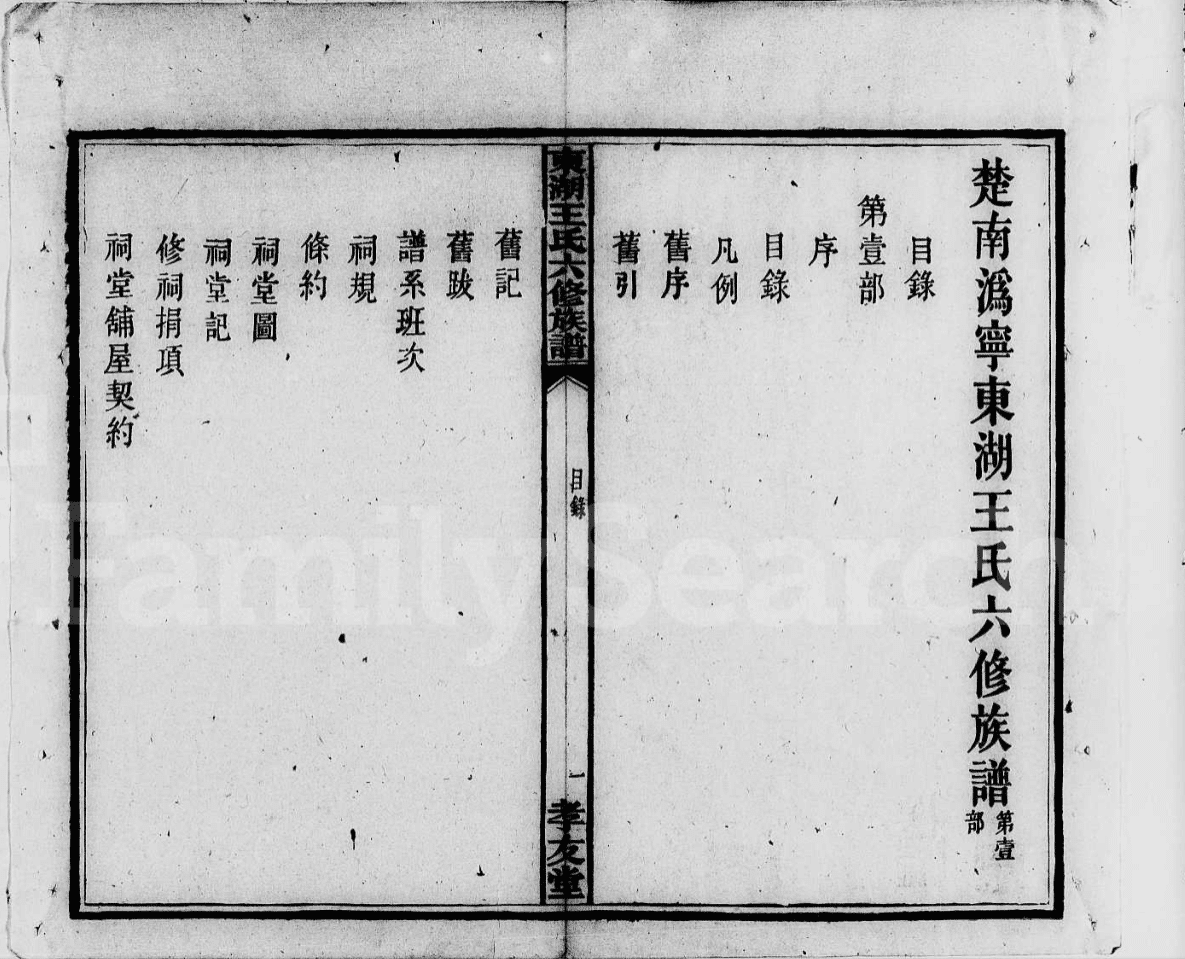 楚南潙寧東湖王氏六修族譜 第壹部
目錄
第壹部
序
目錄
凡例
舊序
舊引
東湖王氏六修族譜
目錄
一
孝友堂
舊記
舊跋
譜系班次
祠規
條約
祠堂圖
祠堂記
修祠捐項
祠堂舖屋契約
FamilySearch